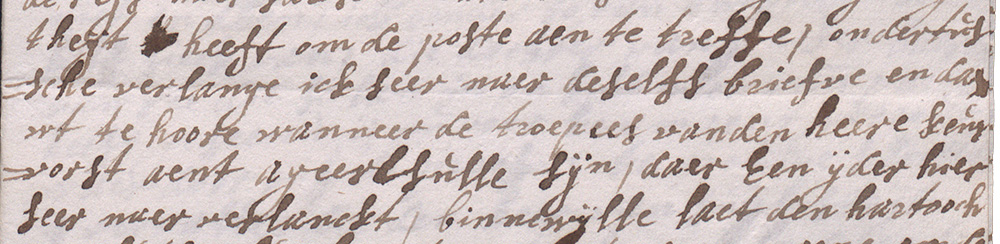 theyt heeft om de poste aen te treffe, ondertus
=sche verlange ick seer naer deselfs briefve en daer
wt te hoore wanneer de troepees vanden heere keur
=vorst aent ageere sulle sijn, daer Een ijder hier
seer naer verlanckt, binnewijlle laet den hartooch